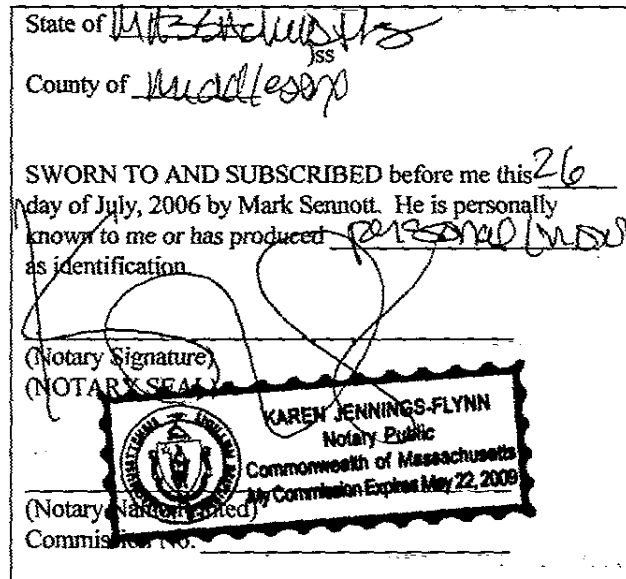 State of Massachusetts
)ss
County of Middlesex
SWORN TO AND SUBSCRIBED before me this 26
day of July, 2006 by Mark Sennott. He is personally
known to me or has produced personal know
as identification
(Notary Signature)
(NOTARY SEAL)
KAREN JENNINGS-FLYNN
Notary Public
Commonwealth of Massachusetts
My Commission Expires May 22, 2009
(Notary Name Printed)
Commission No.